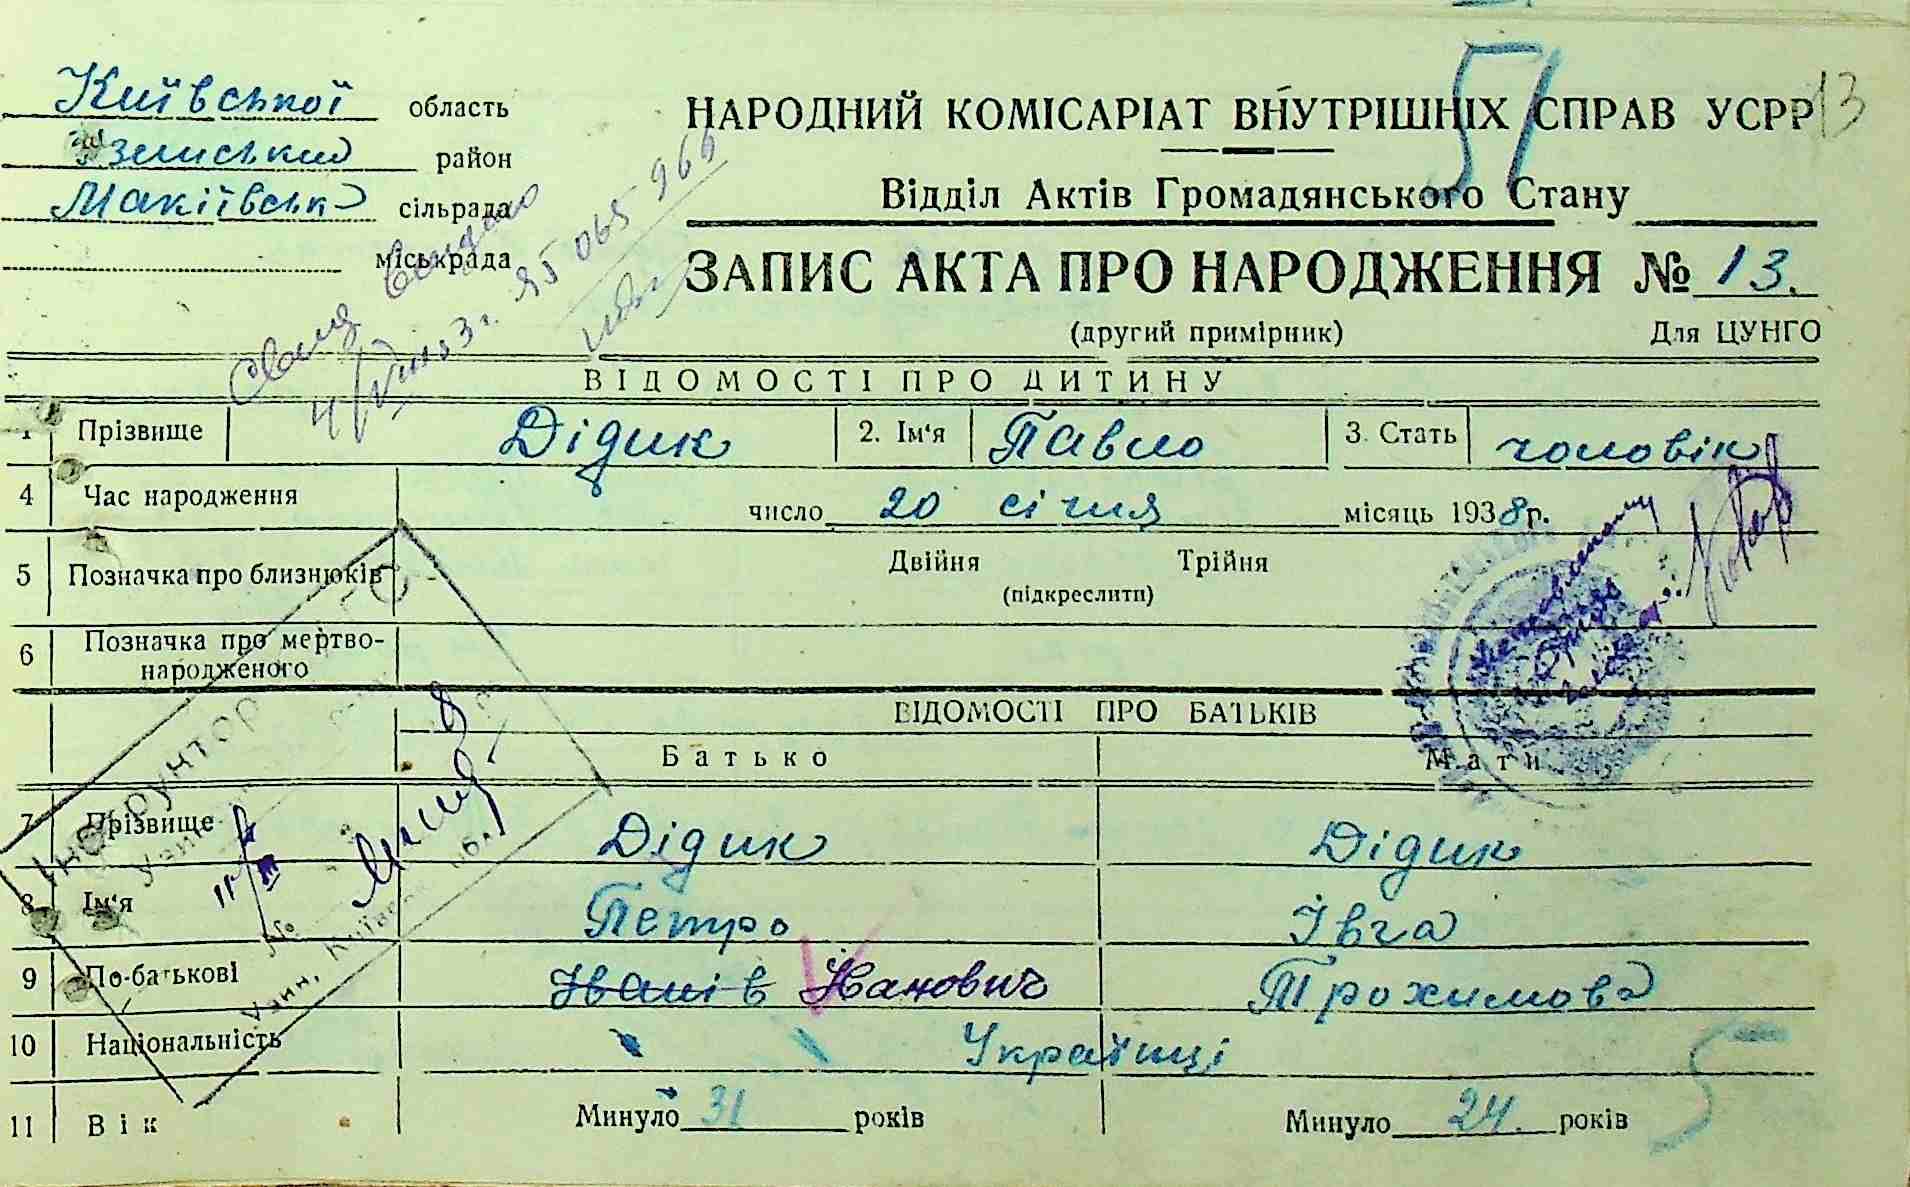 Київської область
район
Макіївська сільрада
міськрада
51
13
НАРОДНИЙ КОМІСАРІАТ ВНУТРІШНІХ СПРАВ УСРР
Відділ Актів Громадянського Стану
ЗАПИС АКТА ПРО НАРОДЖЕННЯ № 13.
(другий примірник) Для ЦУНГО
065 966
ВІДОМОСТІ ПРО ДИТИНУ
1 Прізвище Дідик 2. Ім'я Павло 3. Стать чоловік
4 Час народження число 20 січня місяць 1938 р.
5 Позначка про близнюків Двійня Трійня
(підкреслити)
6 Позначка про мертво-
народженого
ВІДОМОСТІ ПРО БАТЬКІВ
Батько Мати
7 Прізвище Дідик Дідик
8 Ім'я Петро Івга
9 По-батькові Іванів Іванович Трохимова
10 Національність Українці
11 Вік Минуло 31 років Минуло 24. років
Інструктор
Узин, Київськ. обл.
5